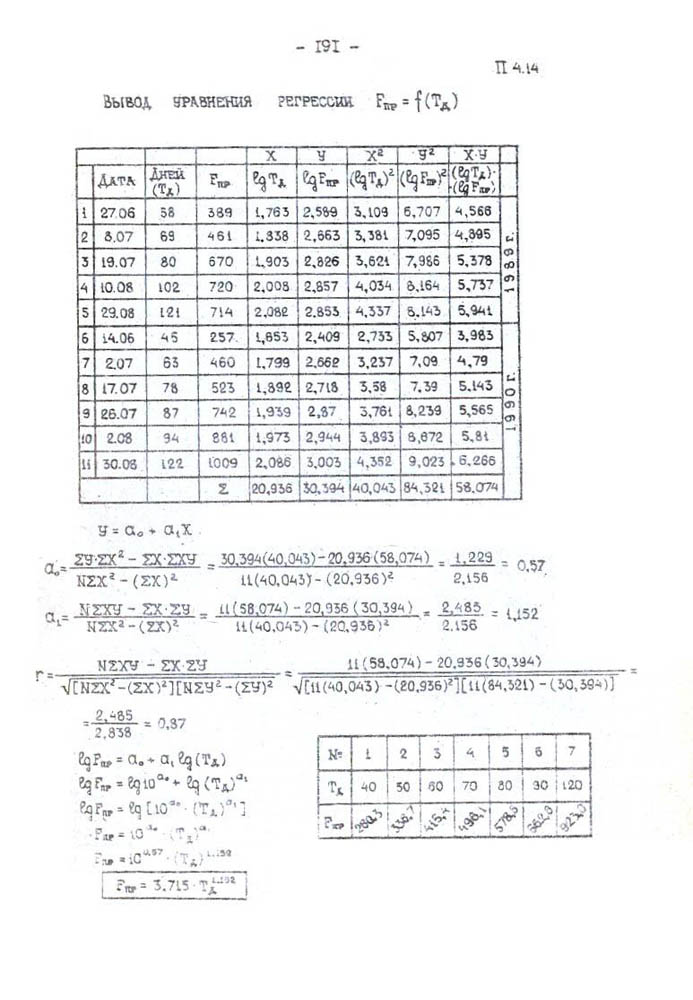 - 191 -
П 4.14
ВЫВОД УРАВНЕНИЯ РЕГРЕССИИ Fпр = f(Tд)
X У X² У² X·У
ДАТА ДНЕЙ (Tд) Fпр lgTд lgFпр (lgTд)² (lgFпр)² (lgTд)·(lgFпр)
1 27.06 58 389 1,763 2,589 3,109 6,707 4,566
2 8.07 69 461 1,838 2,663 3,381 7,095 4,895
3 19.07 80 670 1,903 2,826 3,621 7,986 5,378
4 10.08 102 720 2,008 2,857 4,034 8,164 5,737
5 29.08 121 714 2,082 2,853 4,337 8,143 5,941
1989 г.
6 14.06 45 257 1,653 2,409 2,733 5,807 3,983
7 2.07 63 460 1,799 2,662 3,237 7,09 4,79
8 17.07 78 523 1,892 2,718 3,58 7,39 5,143
9 26.07 87 742 1,939 2,87 3,761 8,239 5,565
10 2.08 94 881 1,973 2,944 3,893 8,672 5,81
11 30.08 122 1009 2,086 3,003 4,352 9,023 6,266
1990 г.
Σ 20,936 30,394 40,043 84,321 58,074
У = a₀ + a₁X
a₀ = (ΣУ·ΣX² - ΣX·ΣXУ)/(NΣX² - (ΣX)²) = (30,394(40,043) - 20,936(58,074))/(11(40,043) - (20,936)²) = 1,229/2,156 = 0,57
a₁ = (NΣXУ - ΣX·ΣУ)/(NΣX² - (ΣX)²) = (11(58,074) - 20,936(30,394))/(11(40,043) - (20,936)²) = 2,485/2,156 = 1,152
r = (NΣXУ - ΣX·ΣУ)/√[NΣX² - (ΣX)²][NΣУ² - (ΣУ)² = (11(58,074) - 20,936(30,394))/√[11(40,043) - (20,936)²][11(84,321) - (30,394)] =
= 2,485/2,838 = 0,87
lgFпр = a₀ + a₁ lg(Tд)
lgFпр = lg10^a₀ + lg(Tд)^a₁
lgFпр = lg[10^a₀ · (Tд)^a₁]
Fпр = 10^a₀ · (Tд)^a₁
Fпр = 10^0,57 · (Tд)^1,152
Fпр = 3,715 · Tд^1,152
№ 1 2 3 4 5 6 7
Tд 40 50 60 70 80 90 120
Fпр 260,3 336,7 415,4 496,1 578,6 662,8 923,0